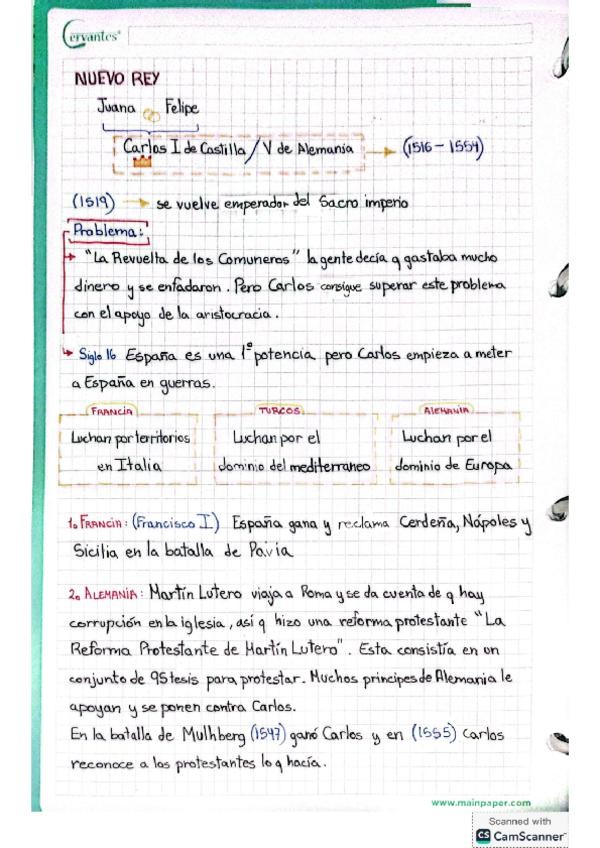 Cervantes
NUEVO REY
Juana Felipe
Carlos I de Castilla / V de Alemania → (1516 - 1554)
(1519) → se vuelve emperador del Sacro imperio
Problema:
→ "La Revuelta de los Comuneros" la gente decía q gastaba mucho
dinero y se enfadaron. Pero Carlos consigue superar este problema
con el apoyo de la aristocracia.
→ Siglo 16 España es una 1º potencia pero Carlos empieza a meter
a España en guerras.
FRANCIA TURCOS ALEMANIA
Luchan por territorios Luchan por el Luchan por el
en Italia dominio del mediterraneo dominio de Europa
1. FRANCIA: (Francisco I) España gana y reclama Cerdeña, Nápoles y
Sicilia en la batalla de Pavia
2. ALEMANIA: Martín Lutero viaja a Roma y se da cuenta de q hay
corrupción en la iglesia, así q hizo una reforma protestante "La
Reforma Protestante de Martín Lutero". Esta consistía en un
conjunto de 95 tesis para protestar. Muchos principes de Alemania le
apoyan y se ponen contra Carlos.
En la batalla de Mulhberg (1547) ganó Carlos y en (1555) Carlos
reconoce a los protestantes lo q hacía.
www.mainpaper.com
Scanned with
CS CamScanner